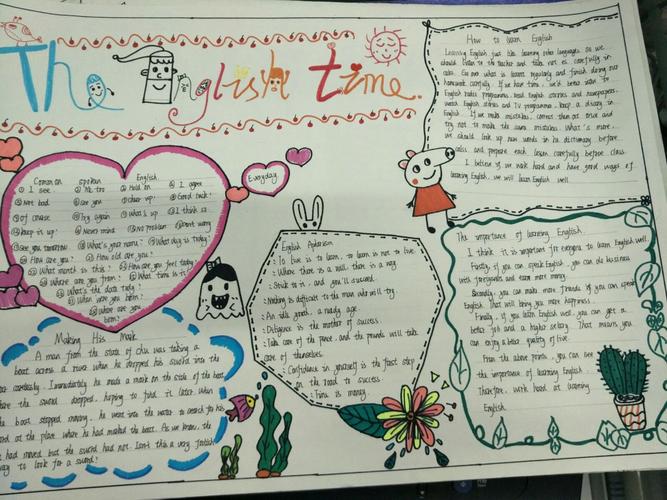 The English time.
Common spoken English
① I see. ② Me too ③ Hold on ④ I agree
Not bad See you Cheer up! Good luck!
of course Try again what's up I think so.
keep it up! Never mind No problem Don't worry
see you tomorrow What's your name? What day is today?
How are you? How old are you?
What month is this? How are you feel today?
Where are you from? What time is it?
What's the date today?
When were you born?
Where are you born?
Everyday
Making His Mark
A man from the state of chu was taking a
boat across a river when he dropped his sword into the
carelessly. Immediately he made a mark on the side of the boat
where the sword dropped, hoping to find it later. When
the boat stopped moving, he went into the water to search for his
sword at the place where he had marked the boat. As we know, the
had moved but the sword had not. Isn't this a very foolish
way to look for a sword?
English Aphorism
To live is to learn, to learn is not to live.
Where there is a will, there is a way.
Stick to it, and you'll succeed.
Nothing is difficult to the man who will try.
An idle youth, a needy age.
Diligence is the mother of success.
Take care of the pence, and the pounds will take
care of themselves.
Confidence in yourself is the first step
on the road to success.
Time is money.
How to learn English
Learning English just like learning other languages. So we
should listen to the teacher and take notes carefully in
class. Go over what is learnt regularly and finish doing our
homework carefully. If we have time, we'd better listen to
English radio programme, read English stories and newspapers,
watch English stories and TV programme, keep a diary in
English. If we make mistakes, correct them at once and
try not to make the same mistakes. What's more,
we should look up new words in the dictionary before
class and prepare each lesson carefully before class.
I believe if we work hard and have good ways of
learning English, we will learn English well.
The importance of learning English.
I think it is important for everyone to learn English well.
Firstly, if you can speak English, you can do business
with foreigners and earn more money.
Secondly, you can make more friends if you can speak
English. That will bring you more happiness.
Finally, if you learn English well, you can get a
better job and a higher salary. That means you
can enjoy a better quality of live.
From the above points, you can see
the importance of learning English.
Therefore, work hard at learning
English.